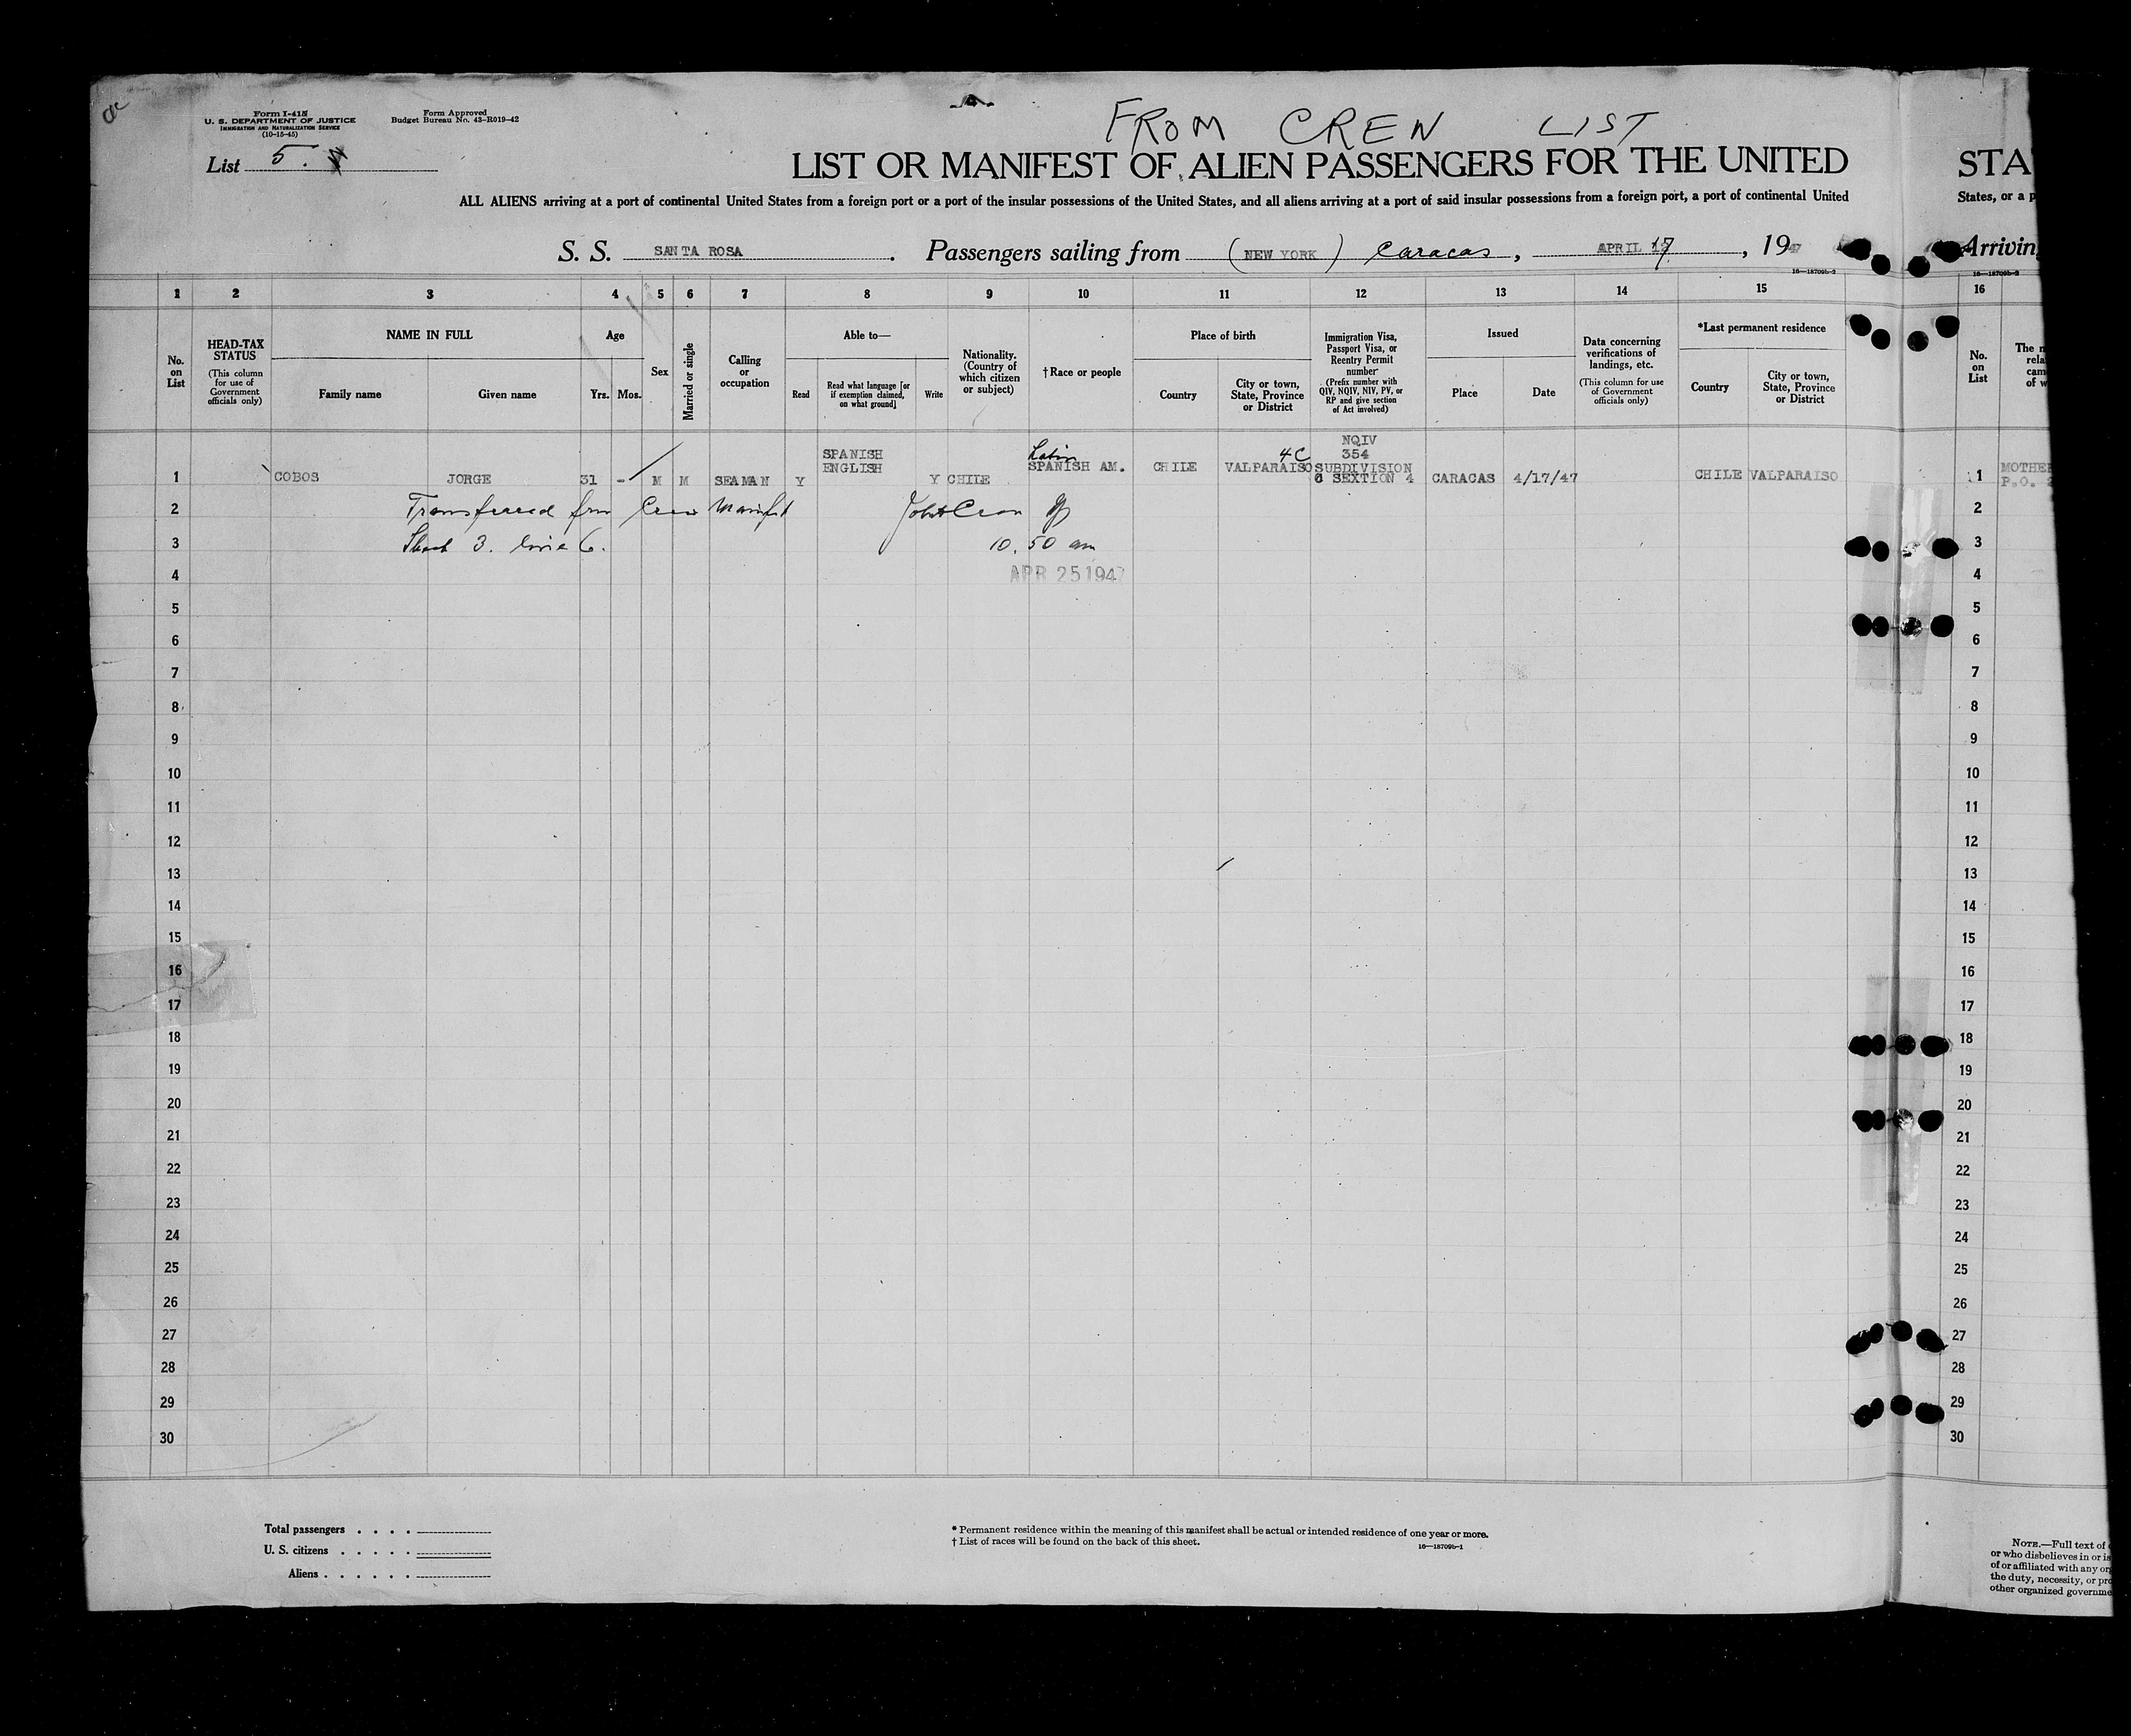 Form I-415
U. S. DEPARTMENT OF JUSTICE
IMMIGRATION AND NATURALIZATION SERVICE
(10-15-45)
Form Approved
Budget Bureau No. 43-R019-42
FROM CREW LIST
List 5.
LIST OR MANIFEST OF ALIEN PASSENGERS FOR THE UNITED
STA
ALL ALIENS arriving at a port of continental United States from a foreign port or a port of the insular possessions of the United States, and all aliens arriving at a port of said insular possessions from a foreign port, a port of continental United
States, or a p
S. S. SANTA ROSA. Passengers sailing from (NEW YORK) Caracas, APRIL 17, 1947
Arrivin
16—18709b-2
16—18709b-2
1 2 3 4 5 6 7 8 9 10 11 12 13 14 15 16
No. on List
HEAD-TAX STATUS
(This column for use of Government officials only)
NAME IN FULL
Family name
Given name
Age
Yrs.
Mos.
Sex
Married or single
Calling or occupation
Able to—
Read
Read what language [or if exemption claimed, on what ground]
Write
Nationality. (Country of which citizen or subject)
†Race or people
Place of birth
Country
City or town, State, Province or District
Immigration Visa, Passport Visa, or Reentry Permit number
(Prefix number with QIV, NQIV, NIV, PV, or RP and give section of Act involved)
Issued
Place
Date
Data concerning verifications of landings, etc.
(This column for use of Government officials only)
*Last permanent residence
Country
City or town, State, Province or District
No. on List
The n
rela
cam
of w
1 COBOS JORGE 31 - M M SEAMAN Y SPANISH ENGLISH Y CHILE Latin SPANISH AM. CHILE VALPARAISO 4C NQIV 354 SUBDIVISION C SEXTION 4 CARACAS 4/17/47 CHILE VALPARAISO
1 MOTHE
P.O. 2
2 Transferred from Crew Manifest
2
3 Sheet 3. line 6. 10.50 am
3
4 APR 25 1947
4
5 5
6 6
7 7
8 8
9 9
10 10
11 11
12 12
13 13
14 14
15 15
16 16
17 17
18 18
19 19
20 20
21 21
22 22
23 23
24 24
25 25
26 26
27 27
28 28
29 29
30 30
Total passengers . . . .
U. S. citizens . . . . .
Aliens . . . . . .
* Permanent residence within the meaning of this manifest shall be actual or intended residence of one year or more.
† List of races will be found on the back of this sheet.
16—18709b-1
NOTE.—Full text of
or who disbelieves in or is
of or affiliated with any org
the duty, necessity, or pro
other organized governme